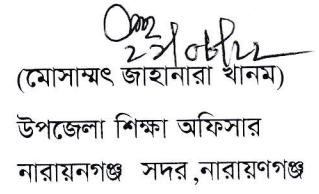 (মোসাম্মৎ জাহানারা খানম)
উপজেলা শিক্ষা অফিসার
নারায়নগঞ্জ সদর ,নারায়ণগঞ্জ